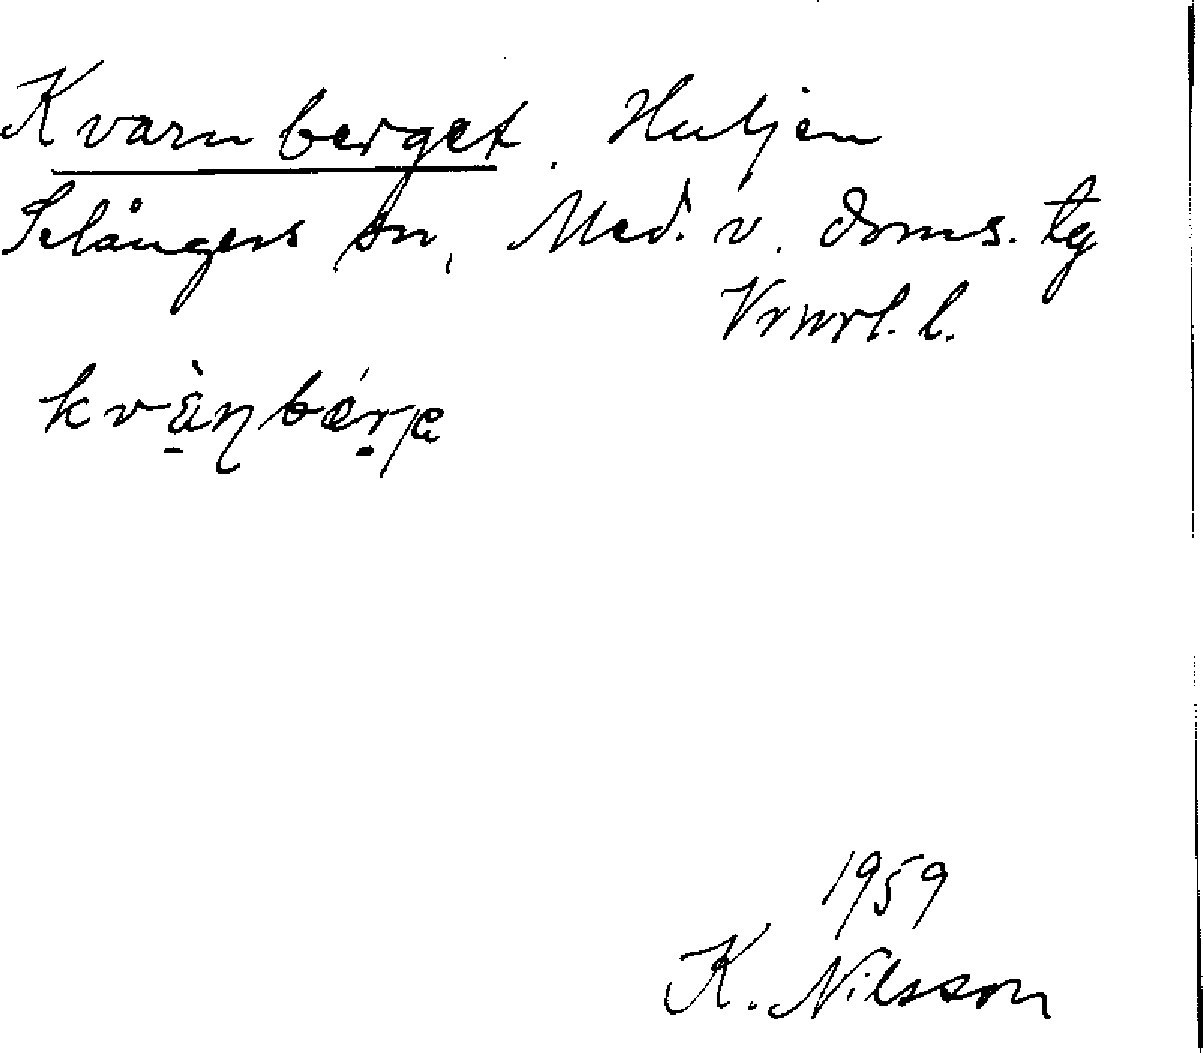 Kvarnberget. Huljen
Selångers sn, Med. v. doms. tg
Vrnrl. l.
kvä̀ṇbærje
1959
K. Nilsson